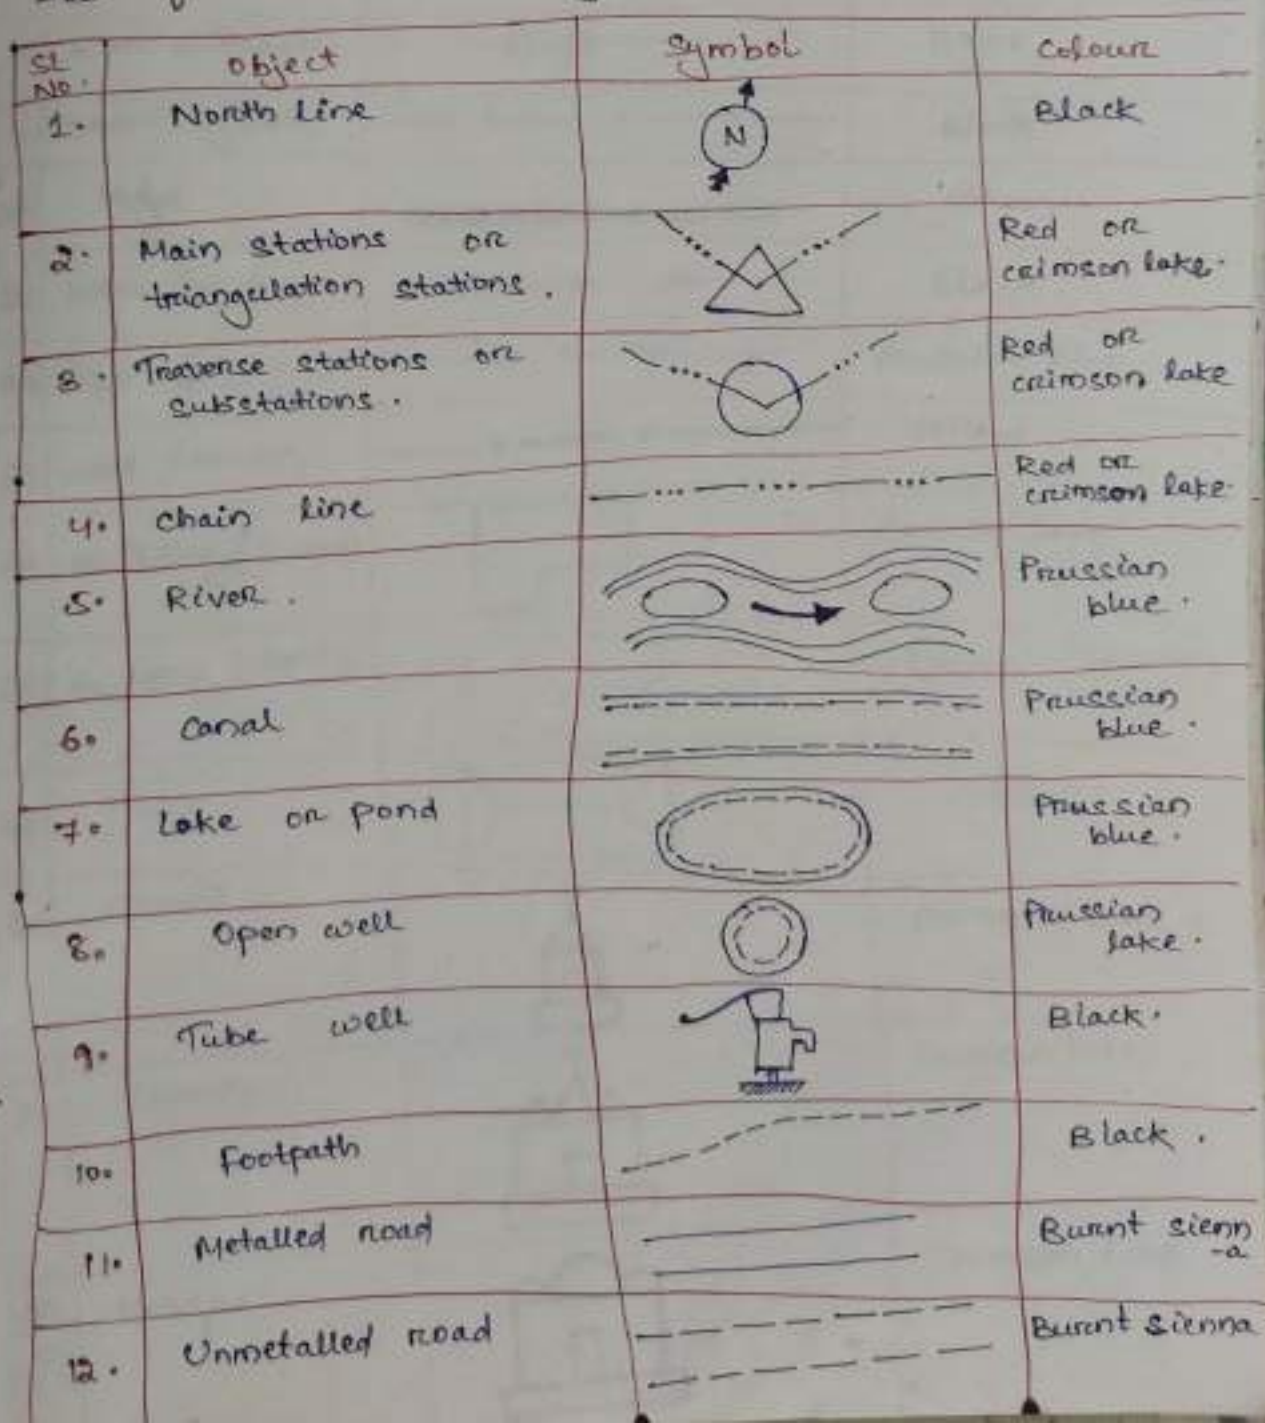 Sl No. Object Symbol Colour
1. North line N Black
2. Main stations or Red or
triangulation stations. crimson lake.
3. Traverse stations or Red or
substations. crimson lake
4. Chain line Red or
crimson lake.
5. River. Prussian
blue.
6. Canal Prussian
blue.
7. Lake or pond Prussian
blue.
8. Open well Prussian
lake.
9. Tube well Black.
10. Footpath Black.
11. Metalled road Burnt sienn
-a
12. Unmetalled road Burnt sienna